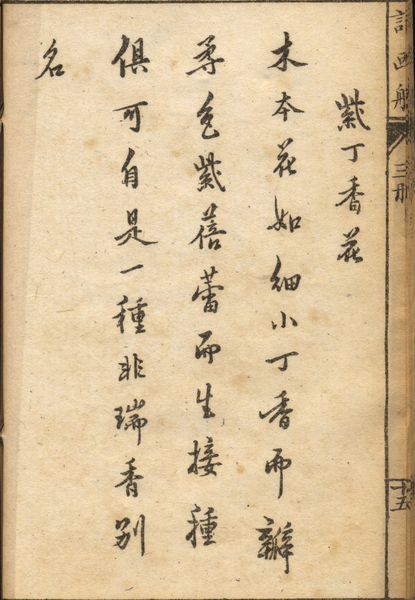 詩画舫 三冊 十五
紫丁香花
木本花如細小丁香而瓣
柔色紫蓓蕾而生接種
俱可自是一種非瑞香別
名